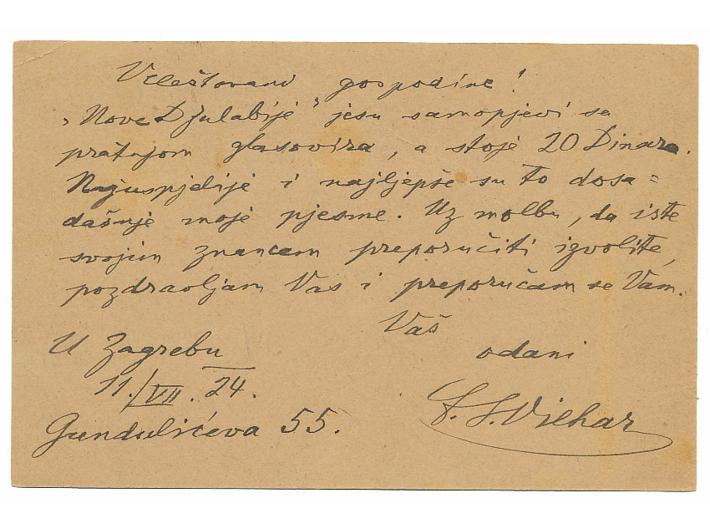 Veleštovani gospodine!
„Nove Djulabije" jesu samopjevi sa
pratnjom glasovira, a stoje 20 Dinara.
Najuspjelije i najljepše su to dosa=
dašnje moje pjesme. Uz molbu, da iste
svojim znancem preporučiti izvolite,
pozdravljam Vas i preporučam se Vam.
Vaš
odani
U Zagrebu
11./VII. 24.
Gundulićeva 55.
F. S. Vilhar